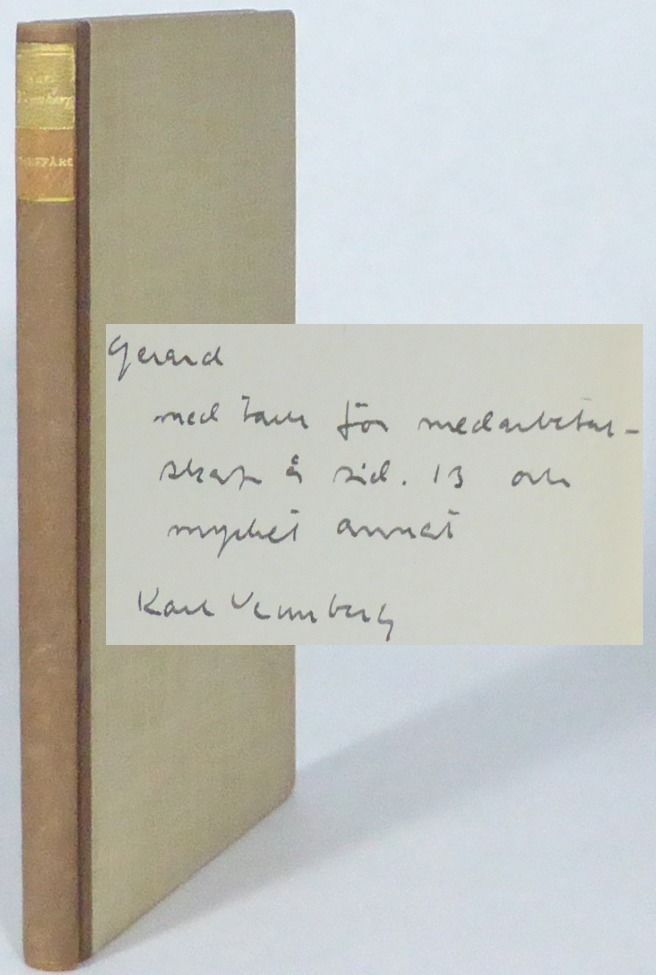 Karl
Vennberg
FISKEFÄRD
Gerard
med tack för medarbetar-
skap å sid. 13 och
mycket annat
Karl Vennberg